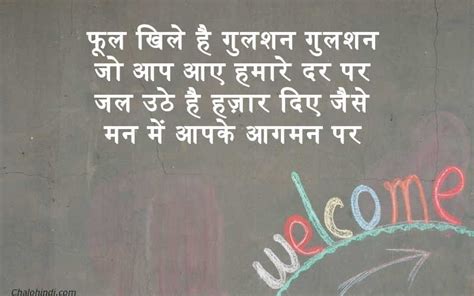 फूल खिले है गुलशन गुलशन
जो आप आए हमारे दर पर
जल उठे है हज़ार दिए जैसे
मन में आपके आगमन पर
welcome
Chalohindi.com